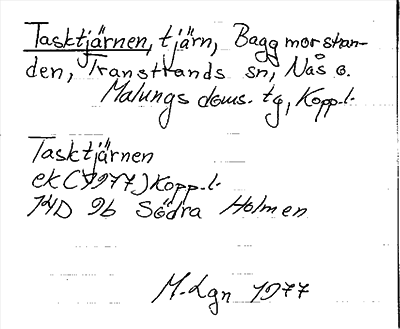 Tasktjärnen, tjärn, Baggmorstran-
den, Transtrands sn, Nås o.
Malungs doms. tg, Kopp. l.
Tasktjärnen
ek (1977) Kopp. l.
14D 9b Södra Holmen
M. Lgn 1977